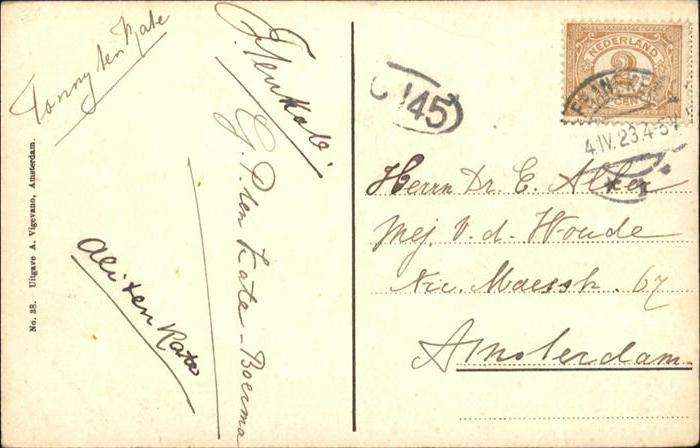 Tonny ten Kate
G. P. ten Kate-Boerma
Ali ten Kate
No. 38. Uitgave A. Vigevano, Amsterdam.
NEDERLAND
2
CENT
FRANEKER
4.IV.23.4-5
145
Herrn Dr. E. Alker
Mej. v. d. Woude
Nic. Maesstr. 67
Amsterdam